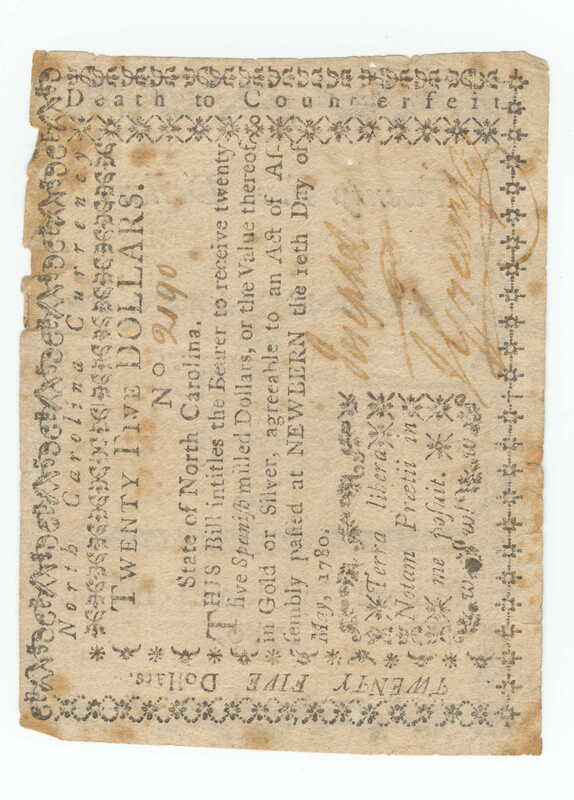 North Carolina Currency
TWENTY FIVE DOLLARS.
No 2190
State of North Carolina.
THIS Bill intitles the Bearer to receive twenty
five Spaniſh milled Dollars, or the Value thereof
in Gold or Silver, agreeable to an Act of Aſ-
ſembly paſſed at NEWBERN the 10th Day of
May, 1780.
Terra libera
Notam Pretii in
me poſuit.
TWENTY FIVE Dollars.
Death to Counterfeit